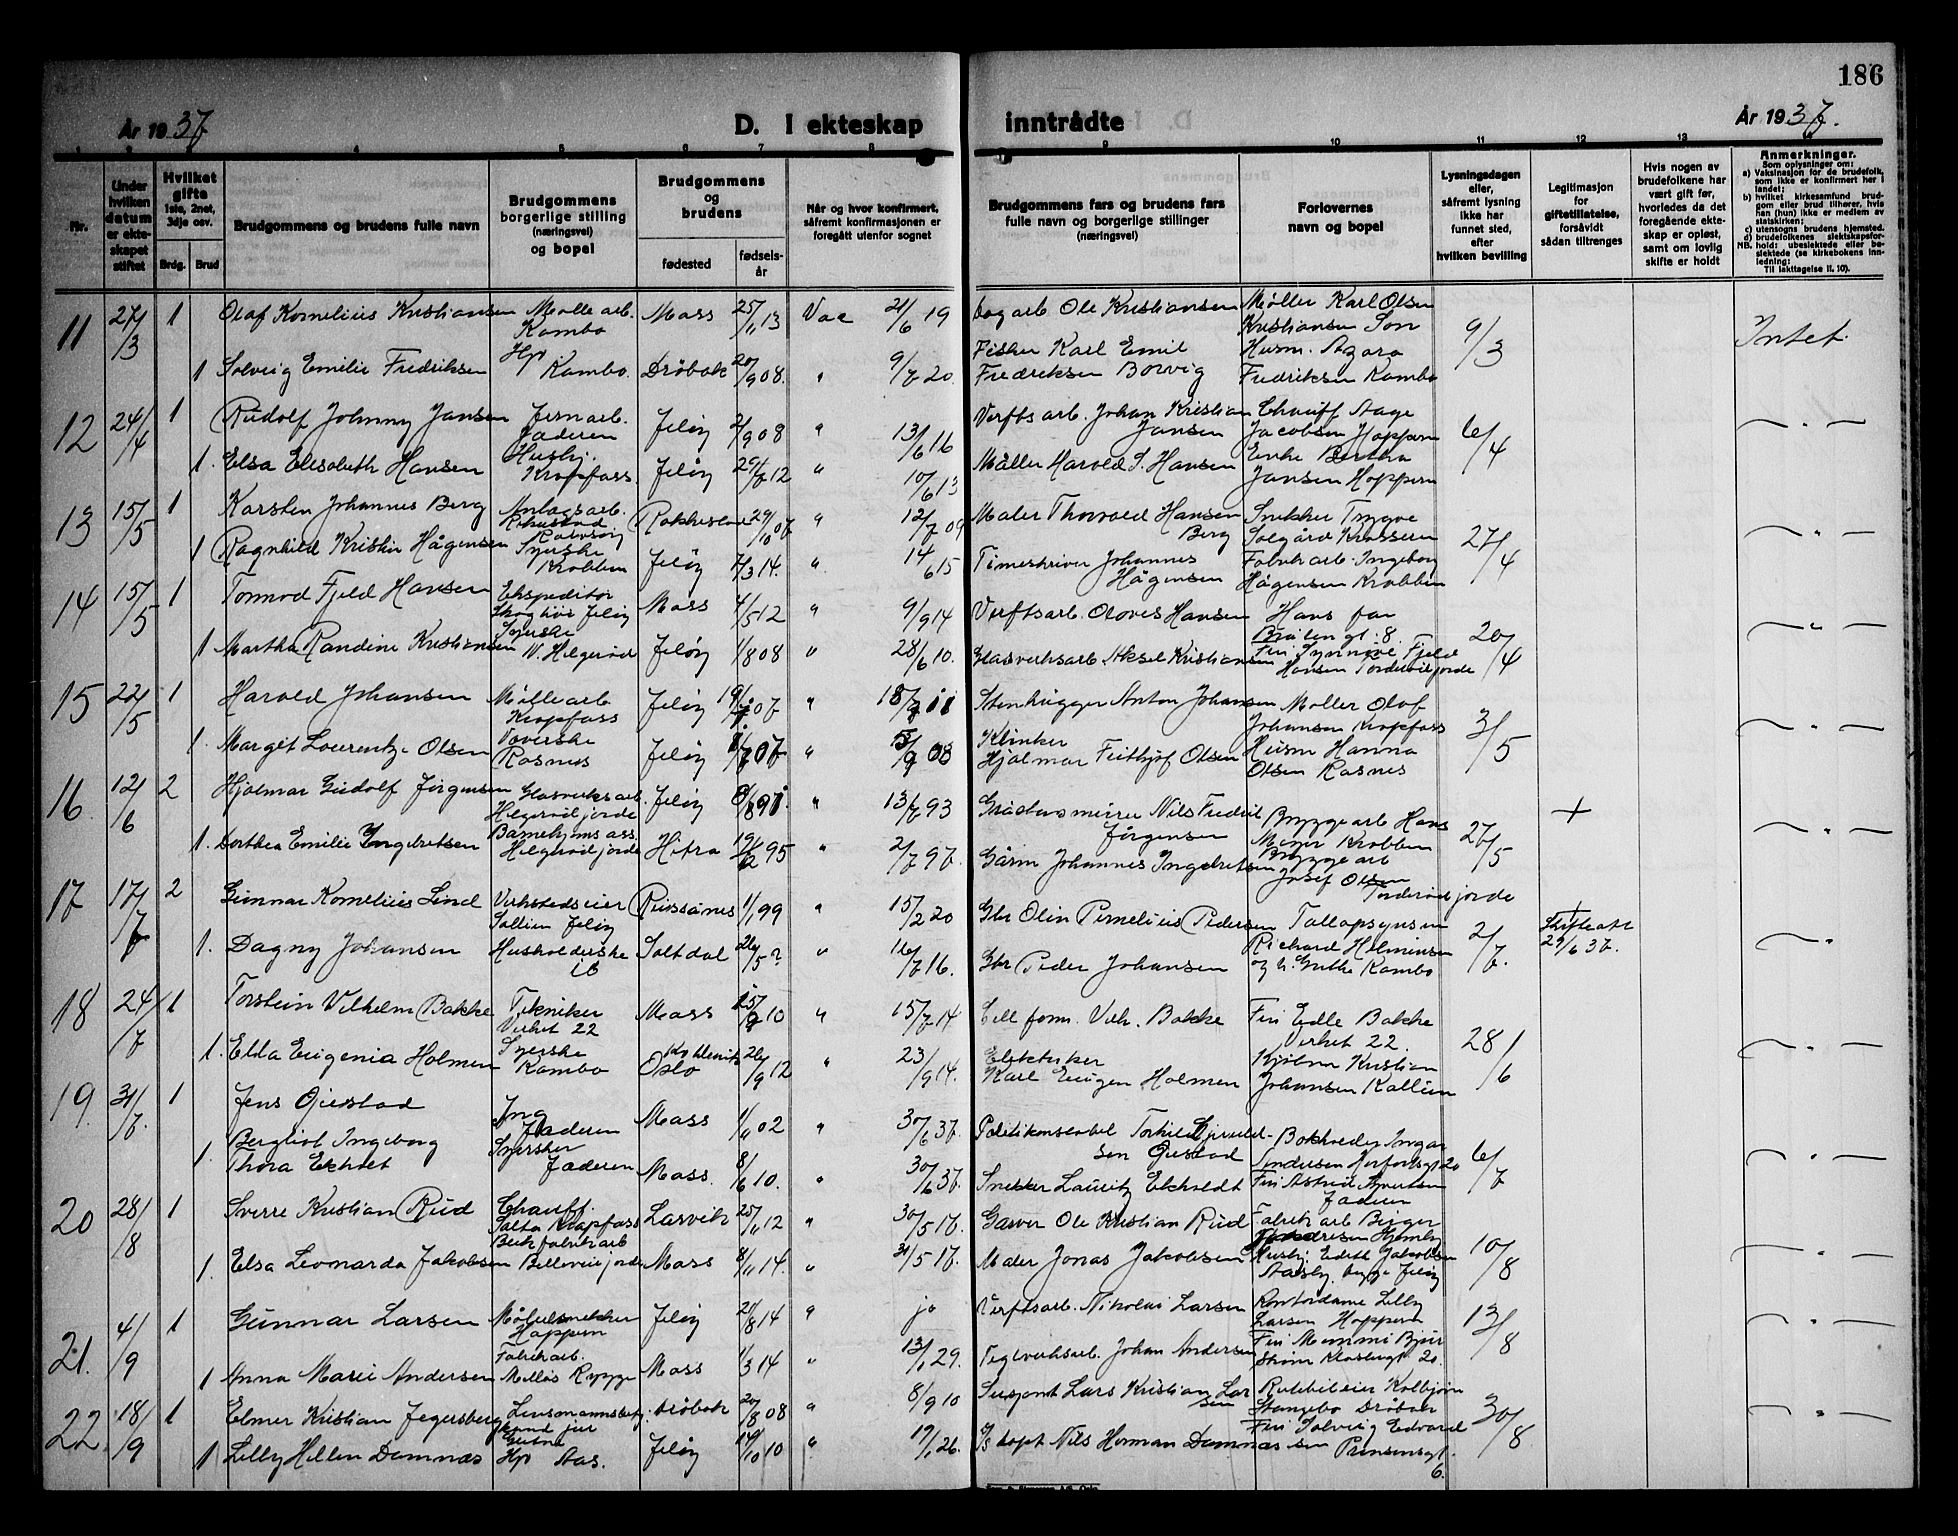 186
År 1937
D. I ekteskap inntrådte
År 1937.
1 2 3 4 5 6 7 8 9 10 11 12 13 14
Nr.
Under hvilken datum er ekteskapet stiftet
Hvilket gifte 1ste, 2net, 3dje osv.
Brdg. Brud
Brudgommens og brudens fulle navn
Brudgommens borgerlige stilling (næringsvei) og bopel
Brudgommens og brudens
fødested
fødselsår
Når og hvor konfirmert, såfremt konfirmasjonen er foregått utenfor sognet
Brudgommens fars og brudens fars fulle navn og borgerlige stillinger (næringsvei)
Forlovernes navn og bopel
Lysningsdagen eller, såfremt lysning ikke har funnet sted, efter hvilken bevilling
Legitimasjon for giftetillatelse, forsåvidt sådan tiltrenges
Hvis nogen av brudefolkene har vært gift før, hvorledes da det foregående ekteskap er opløst, samt om lovlig skifte er holdt
Anmerkninger.
Som oplysninger om:
a) Vaksinasjon for de brudefolk, som ikke er konfirmert her i landet;
b) hvilket kirkesamfund brudgom eller brud tilhører, hvis han (hun) ikke er medlem av statskirken;
c) utensogns brudens hjemsted.
d) brudefolkenes slektskapsforhold: ubeslektede eller beslektede (se kirkebokens innledning: Til iakttagelse II. 10).
NB.
11 27/3 1 Olaf Kornelius Kristiansen Mølle arb. Kambo Moss 25/11 13 Vac 21/6 19 Dagarb Ole Kristiansen Møller Karl Olsen Kristiansen Son 9/3 Intet.
1 Solveig Emilie Fredriksen Hp Kambo. Drøbak 20/9 08. " 9/7 20. Fisker Karl Emil Fredriksen Borvig Husm. Agara Fredriksen Kambo
12 24/4 1 Rudolf Johnny Jansen Jernarb. Jaderen Jeløy 2/9 08 " 13/6 16 Verfts arb. Johan Kristian Jansen Chauff Aage Jacobsen Hoppern 6/4 — " —
1. Elsa Elisabeth Hansen Husbj. Kropfoss. Jeløy 29/7 12 " 10/6 13 Møller Harald S. Hansen Enke Bertha Jansen Hoppern
13 15/5 1 Karsten Johannes Berg Anlagsarb. Rolvsøy Rakkestad 29/10 07 " 12/7 09 Maler Thorvald Hansen Berg Snekker Trygve Solgård Krossern 27/4 — " —
1 Ragnhild Kristin Hågensen Syerske Krabben Jeløy 7/3 14. " 14/6 15 Timeskriver Johannes Hågensen Fabrikarb. Ingeborg Hågensen Krabben
14 15/5 1 Tormod Fjeld Hansen Ekspeditør Skoglior Jeløy Moss 4/5 12 " 9/9 14 Verftsarb. Oloves Hansen Hans far Bråten gt. 8. 20/4 — " —
1 Martha Randine Kristiansen Syerske N. Helgerød Jeløy 1/8 08 " 28/6 10. Glasverksarb Aksel Kristiansen Fru Synnøve Fjeld Hansen Torderødjorde
15 22/5 1 Harald Johansen Møllearb Kropfoss Jeløy 19/ 07 " 18/ 11 Stenhugger Anton Johansen Møller Olaf Johansen Kropfoss 3/5 — " —
1. Margit Laurentze Olsen Væverske Rosnes Jeløy 07 " 08 Klinker Hjalmar Feithjof Olsen Husm Hanna Olsen Rosnes
16 12/6 2 Hjalmar Gudolf Jørgensen Glasverksarb. Helgerødjorde Jeløy /8 97. " 13/7 93 Nils Fredrik Jørgensen Bryggearb Hans Meyer Krabben 27/5 + — " —
1. Dorthea Emilie Ingebretsen Barnehjems ass. Helgerødjorde Hitra 19/12 95 " 2/7 97. Gårm Johannes Ingebretsen Bryggearb Josef Olsen Torderødjorde
17 17/7 2 Gunnar Kornelius Lind Verkstedseier Sollien Jeløy Russånes 1/1 99 " 15/2 20 Gbr Olin Pernelius Pedersen Tallopsynsm Richard Helminsen 2/7. + Skifteatt 29/6 37. — "
1. Dagny Johansen Husholderske ib Saltdal 26/5 ? " 16/7 16. Gbr Peder Johansen og h. Grethe Kambo
18 24/7 1 Torstein Vilhelm Bakke Tekniker Verket 22 Moss 15/9 10 " 15/7 14 Cell form. Vilh. Bakke Fru Edle Bakke Verket 22. 28/6 — " —
1. Elda Eugenia Holmen Syerske Kambo Oslo 26/9 12 " 23/9 14. Elektriker Karl Eugen Holmen Kjøbm Kristian Johansen Kallum
19. 31/7. 1 Jens Ojestad Ing Jaderen Moss 1/11 02 " 30/6 37. Politikonstabel Torkild Gjeruldsen Ojestad Bokholder Ingar Andersen Herfordsgt 20 6/7 — " —
1. Bergliot Ingeborg Thora Ekholt Syerske Jaderen Moss. 8/6 10. " 30/6 37. Snekker Lauritz Ekholdt Fru Astrid Syvertsen Jaderen
20 28/8 1 Sverre Kristian Rud Chauff. Salta Kropfoss Larvik 25/11 12 " 30/5 17. Garver Ole Kristian Rud Fabrikarb Birger Andresen Hjemly 10/8 — " —
1. Elsa Leonarda Jakobsen Fabrikarb Bellevuejorde Moss 8/11 14. " 31/5 17. Maler Jonas Jakobsen Husbj. Edith Jakobsen Jeløy
21. 4/9 1 Gunnar Larsen Møbelsnekker Hoppern Jeløy 21/8 14 " ja Verftsarb. Nikolai Larsen Kontordame Lilly Larsen Hoppern 13/8 — " —
1 Anna Marie Andersen Fabrikarb. Melløs Rygge Moss 1/3 14 " 13/1 29. Teglverksarb. Johan Andersen Fru Memmi Bjur
22. 18/9 1 Elmer Kristian Jegersberg Lensmannsbetj. Drøbak 20/8 08 " 8/9 10 Sersjant Lars Kristian Larsen Rutebileier Kolbjørn Stangebo Drøbak 30/8 — " —
1 Lilly Hellen Damnæs Hp Aas. Jeløy 14/10 10 " 19/1 26. Nils Herman Damnæs Fru Solveig Edvardsen Prinsensgt. 6.